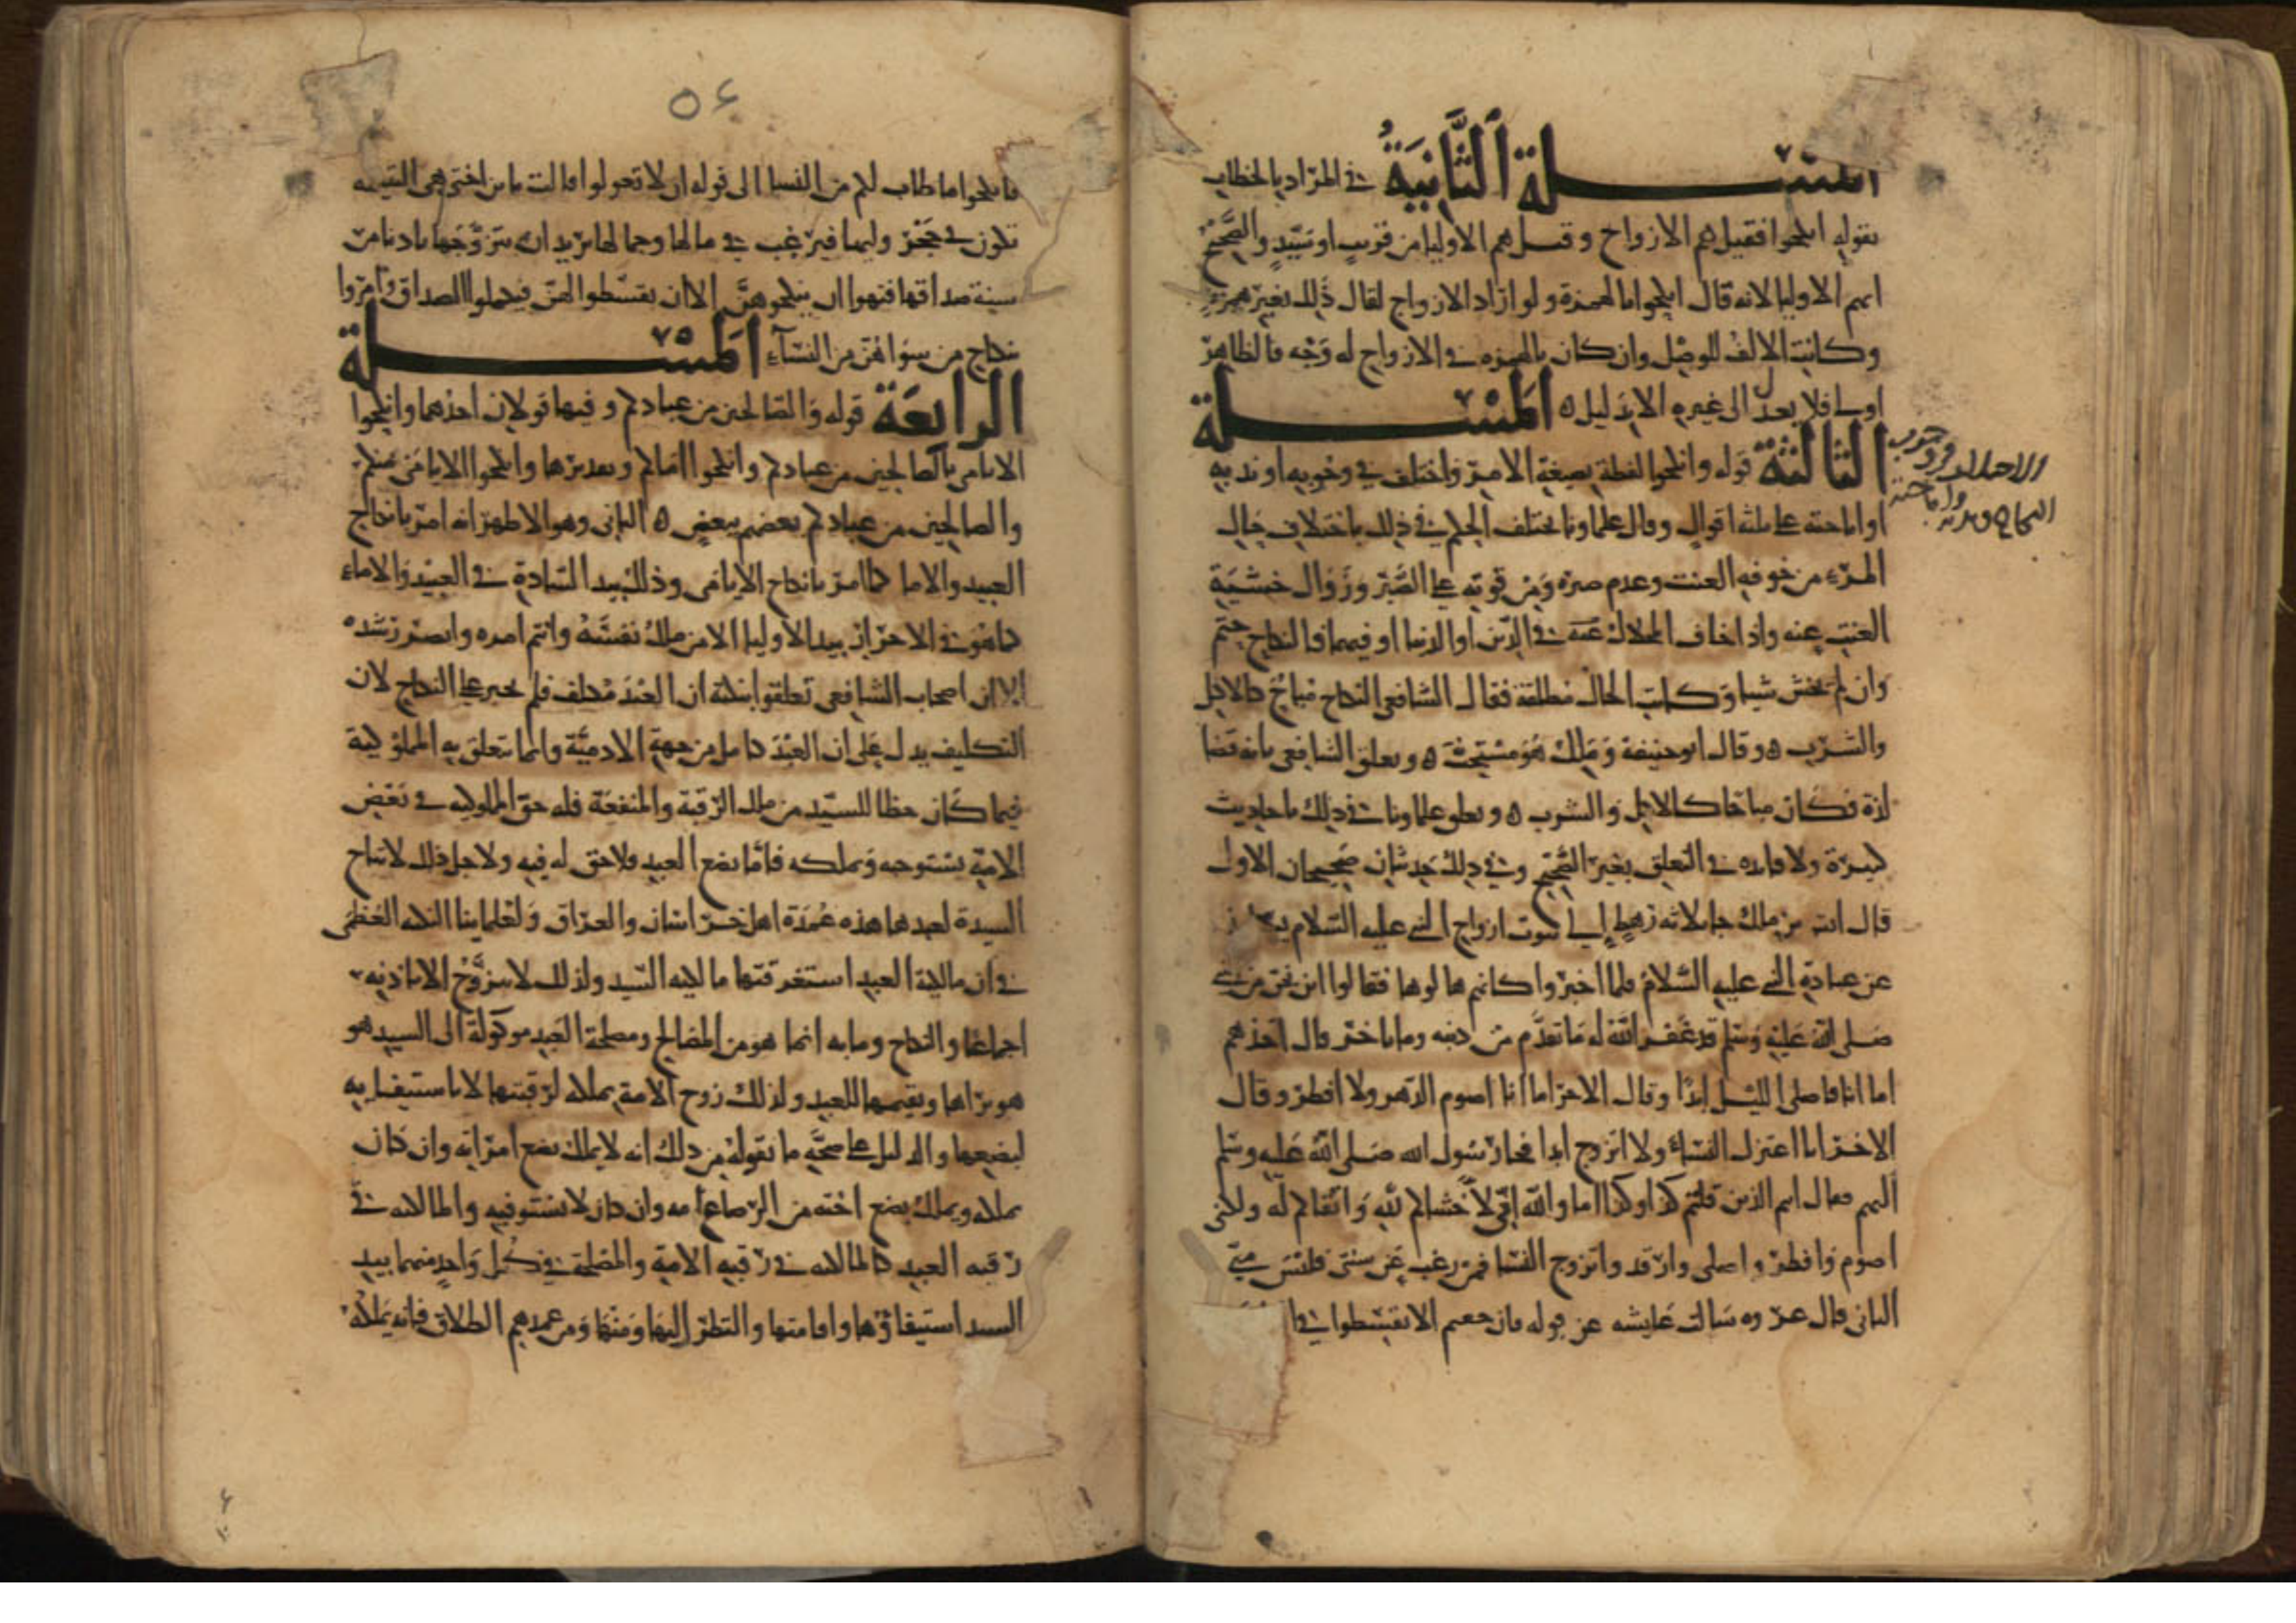 المسئلة الثانية في المراد بالخطاب
بقوله انكحوا فقيل هم الازواج وقيل هم الاوليا من قريب او سيد والصحيح
انهم الاوليا لانه قال انكحوا بالهمزة ولو اراد الازواج لقال ذلك بغير همز
وكانت الالف للوصل وان كان بالهمزه في الازواج له وجه فالظاهر
اولى فلا يعدل الى غيره الا بدليل ه المسئلة
الثالثة قوله وانكحوا لفظة بصيغة الامر واختلف في وجوبه او ندبه
او اباحته على ثلثه اقوال وقال علماونا يختلف الحكم في ذلك باختلاف حال
المرء من خوفه العنت وعدم صبره ومن قوته على الصبر وزوال خشية
العنت عنه واذا خاف الهلاك في الدين او الدنيا او فيهما فالنكاح حتم
وان لم يخش شيا وكانت الحال مطلقة فقال الشافعي النكاح مباح كالاكل
والشرب ه وقال ابو حنيفة وملك هو مستحب ه وتعلق الشافعي بانه قضا
لذة فكان مباحا كالاكل والشرب ه وتعلق علماونا في ذلك باحاديث
كثيرة ولا فايده في التعلق بغير الصحيح وفي ذلك حديثان صحيحان الاول
قال انس بن ملك جا ثلاثه رهط الى بيوت ازواج النبي عليه السلام
عن عبادة النبي عليه السلام فلما اخبروا كانهم تقالوها فقالوا اين نحن من النبي
صلى الله عليه وسلم قد غفر الله له ما تقدم من ذنبه وما تاخر قال احدهم
اما انا فاصلي الليل ابدا وقال الاخر اما انا اصوم الدهر ولا افطر وقال
الاخر انا اعتزل النساء ولا اتزوج ابدا فجا رسول الله صلى الله عليه وسلم
اليهم فقال انتم الذين قلتم كذا وكذا اما والله اني لاخشاكم لله واتقاكم له ولكني
اصوم وافطر واصلي وارقد واتزوج النسا فمن رغب عن سنتي فليس مني
الثاني قال عروه سالت عايشه عن قوله فان خفتم الا تقسطوا في
الاحلاف في وجوب
النكاح وندبه واباحته
٥٤
فانكحوا ما طاب لكم من النسا الى قوله ان لا تعولوا قالت يا بن اختي هي اليتيمه
تكون في حجر وليها فيرغب في مالها وجمالها يريد ان يتزوجها بادنا من
سنة صداقها فنهوا ان ينكحوهن الا ان يقسطوا لهن فيكملوا الصداق وامروا
بنكاح من سواهن من النساء المسئلة
الرابعة قوله والصالحين من عبادكم وفيها قولان احدهما وانكحوا
الايامى بالصالحين من عبادكم وانكحوا امائكم وتقديرها وانكحوا الايامى منكم
والصالحين من عبادكم بعضهم ببعض ه الثاني وهو الاظهر انه امر بانكاح
العبيد والاما كما امر بانكاح الايامى وذلك بيد السادة في العبيد والاماء
كما هو في الاحرار بيد الاوليا الا من ملك نفسه وانتم امره وابصر رشده
الا ان اصحاب الشافعي تعلقوا بنكتة ان العبد مكلف فلم يجبر على النكاح لان
التكليف يدل على ان العبد كامل من جهة الادمية وانما تتعلق به المملوكية
فيما كان حظا للسيد من ملك الرقبة والمنفعة فله حق المملوكيه في بعض
الامة يستوجبه ويملكه فاما بضع العبد فلا حق له فيه ولاجل ذلك لا تباح
السيدة لعبدها هذه عمدة اهل خراسان والعراق ولعلماينا النكته العظمى
في ان مالكية العبد استغرقتها مالكيه السيد ولذلك لا يتزوج الا باذنه
اجماعا والنكاح وبابه انما هو من المصالح ومصلحة العبد موكولة الى السيد هو
هو يراها ويقيمها للعبد ولذلك زوج الامة بملكه لرقبتها لا باستيفايه
لبضعها والدليل على صحة ما نقوله من ذلك انه لا يملك بضع امراته وان كان
يملكه ويملك بضع اخته من الرضاع امه وان كان لا يستوفيه والمالكيه في
رقبه العبد كالمالكيه في رقبه الامة والمصلحة في كل واحد منهما بيد
السيد استيفاؤها واقامتها والنظر اليها ومنها ومن عمدهم الطلاق فانه يملكه